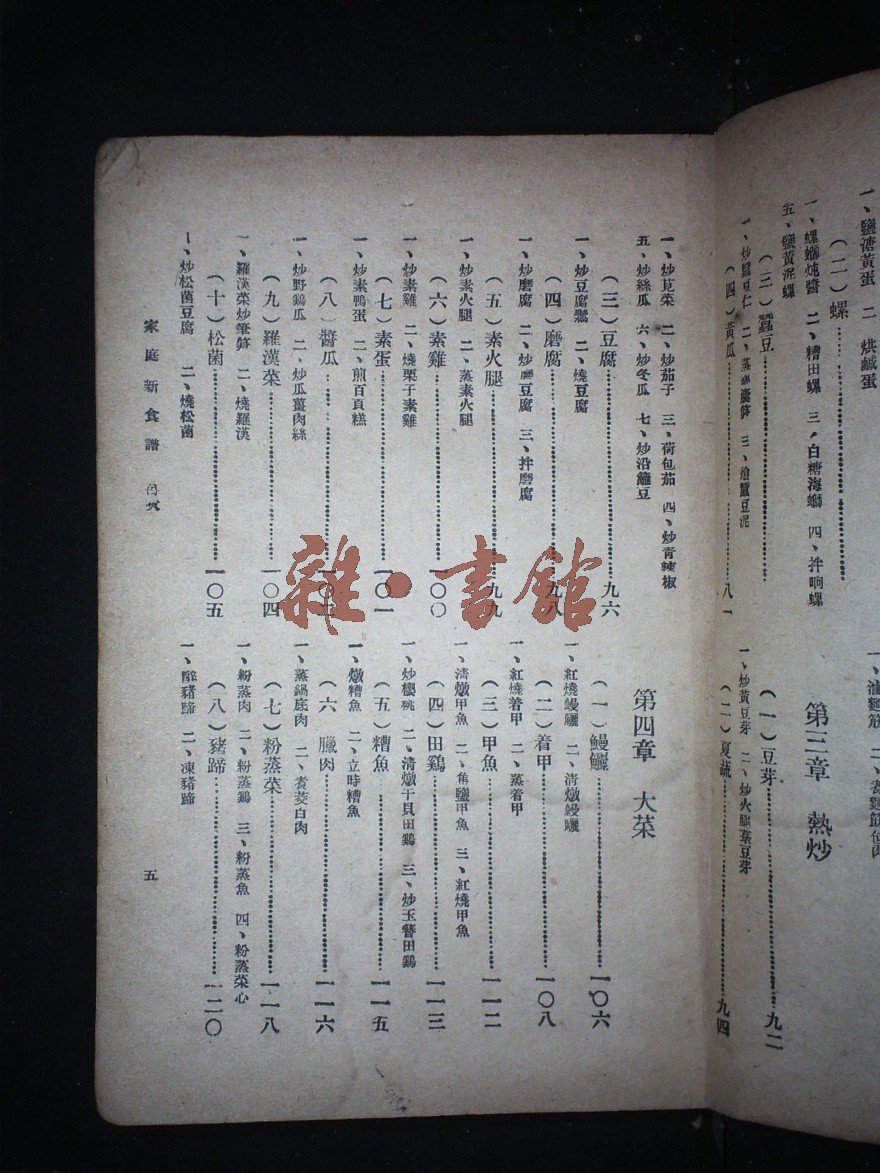 一、鹽溏黃蛋 二 烘鹹蛋
（二）螺
一、螺螄燉醬 二、糟田螺 三、白糖海螄 四、拌响螺
五、鹽黃泥螺
（三）蠶豆
一、炒蠶豆仁 二、蒸 筍 三、燴蠶豆泥
（四）黃瓜……八一
麵筋 二、煮麵筋包肉
第三章 熱炒
（一）豆芽……九二
一、炒黃豆芽 二、炒火腿菉豆芽
（二）夏蔬……九四
一、炒莧菜 二、炒茄子 三、荷包茄 四、炒青辣椒
五、炒絲瓜 六、炒冬瓜 七、炒沿籬豆
（三）豆腐……九六
一、炒豆腐鬆 二、燒豆腐
（四）磨腐……九八
一、炒磨腐 二、炒磨豆腐 三、拌磨腐
（五）素火腿……九九
一、炒素火腿 二、蒸素火腿
（六）素雞……一〇〇
一、炒素雞 二、燒栗子素雞
（七）素蛋……一〇一
一、炒素鴨蛋 二、煎百頁糕
（八）醬瓜……一〇二
一、炒野鷄瓜 二、炒瓜薑肉絲
（九）羅漢菜……一〇四
一、羅漢菜炒筆筍 二、燒羅漢
（十）松菌……一〇五
一、炒松菌豆腐 二、燒松菌
第四章 大菜
（一）鰻鱺……一〇六
一、紅燒鰻鱺 二、清燉鰻鱺
（二）着甲……一〇八
一、紅燒着甲 二、蒸着甲
（三）甲魚……一一二
一、清燉甲魚 二、焦鹽甲魚 三、紅燒甲魚
（四）田鷄……一一三
一、炒櫻桃 二、清燉干貝田鷄 三、炒玉簪田鷄
（五）糟魚……一一五
一、燉糟魚 二、立時糟魚
（六）臘肉……一一六
一、蒸鍋底肉 二、煑菱白肉
（七）粉蒸菜……一一八
一、粉蒸肉 二、粉蒸鷄 三、粉蒸魚 四、粉蒸菜心
（八）豬蹄……一二〇
一、醉豬蹄 二、凍豬蹄
家庭新食譜 目次
五
雜·書館